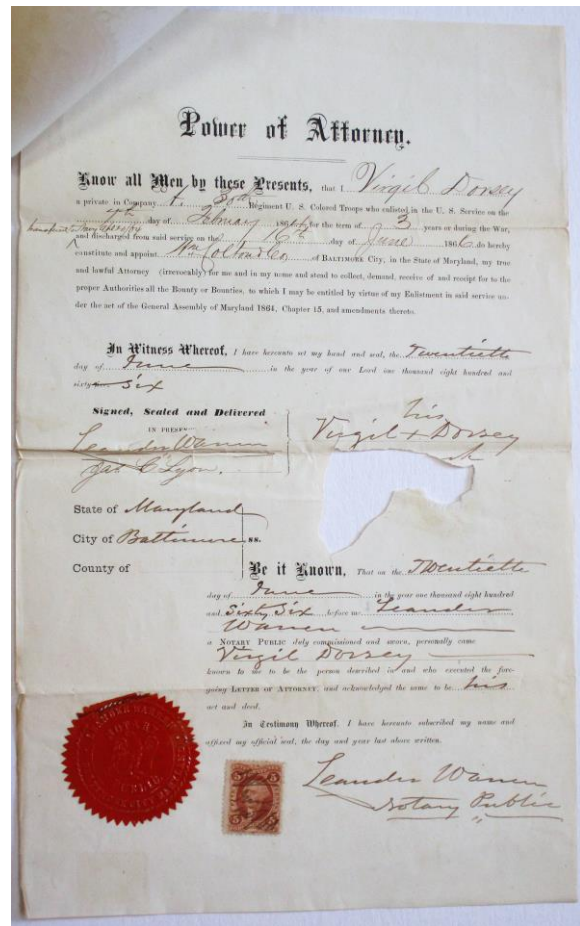 Power of Attorney.
Know all Men by these Presents, that I Virgil Dorsey
a private in Company H. 30th Regiment U. S. Colored Troops who enlisted in the U. S. Service on the
day of February 1864 for the term of 3 years or during the War,
and discharged from said service on the 16th day of June 1866, do hereby
constitute and appoint Wm Colton & Co of BALTIMORE City, in the State of Maryland, my true
and lawful Attorney (irrevocably) for me and in my name and stead to collect, demand, receive of and receipt for to the
proper Authorities all the Bounty or Bounties, to which I may be entitled by virtue of my Enlistment in said service un-
der the act of the General Assembly of Maryland 1864, Chapter 15, and amendments thereto.
In Witness Whereof, I have hereunto set my hand and seal, the Twentieth
day of June in the year of our Lord one thousand eight hundred and
sixty Six
Signed, Sealed and Delivered
IN PRESEN
his
Leander Warren
Virgil + Dorsey
Jas. C. Lyon.
State of Maryland
City of Baltimore ss.
County of
Be it Known, That on the Twentieth
day of June in the year one thousand eight hundred
and Sixty Six before me Leander
Warren
a NOTARY PUBLIC duly commissioned and sworn, personally came
Virgil Dorsey
known to me to be the person described in and who executed the fore-
going LETTER OF ATTORNEY, and acknowledged the same to be his
act and deed.
In Testimony Whereof, I have hereunto subscribed my name and
affixed my official seal, the day and year last above written.
Leander Warren
Notary Public
NOTARY
PUBLIC
5 5